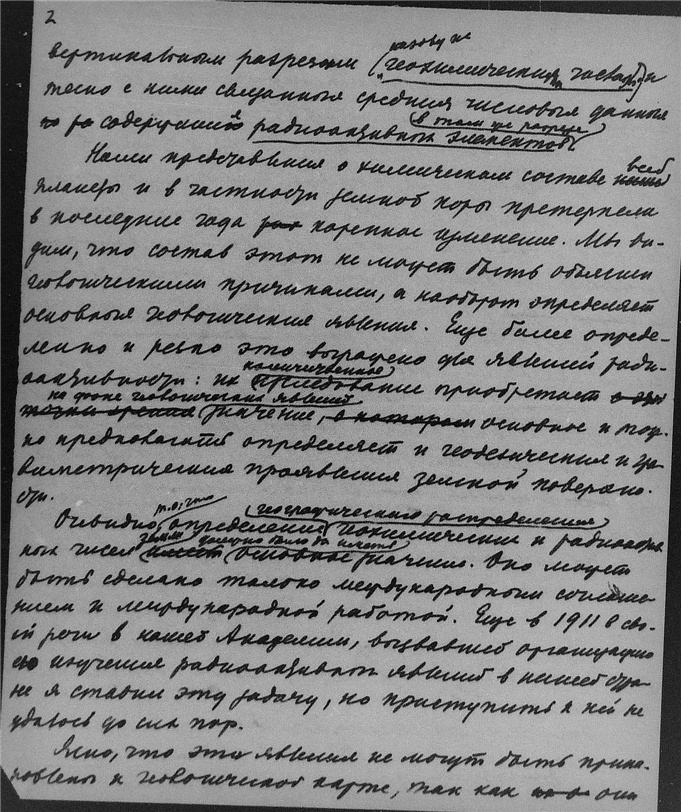 2
назову их
вертикальным разрезам („геохимическия гославы“) и
тесно с ними связанныя средния числовыя данныя
в том же разрезе
содержания радиоактивных элементов.
всей
Наши представления о химическом составе нашей
планеты и в частности земной коры претерпели
в последние года коренное изменение. Мы ви-
дим, что состав этот не может быть объяснен
геологическими причинами, а наоборот определяет
основныя геологическия явления. Еще более опреде-
ленно и резко это выражено для явлений ради-
количественное
оактивности: их исследование приобретает
на фоне геологических явлений
точки зрения значение, в котором основное и мож-
но предполагать определяет и геодезическия и гра-
виметрическия проявления земной поверхно-
сти.
географического распределения
Очевидно, определение геохимических и радиоактив-
земли должно было бы иметь
ных чисел имеет основное значение. Оно может
быть сделано только международным соглаше-
нием и международной работой. Еще в 1911 в сво-
ей речи в нашей Академии, вызвавшей организацию
изучения радиоактивных явлений в нашей стра-
не я ставил эту задачу, но приступить к ней не
удалось до сих пор.
Ясно, что эти явления не могут быть приу-
рочены к геологической карте, так как они